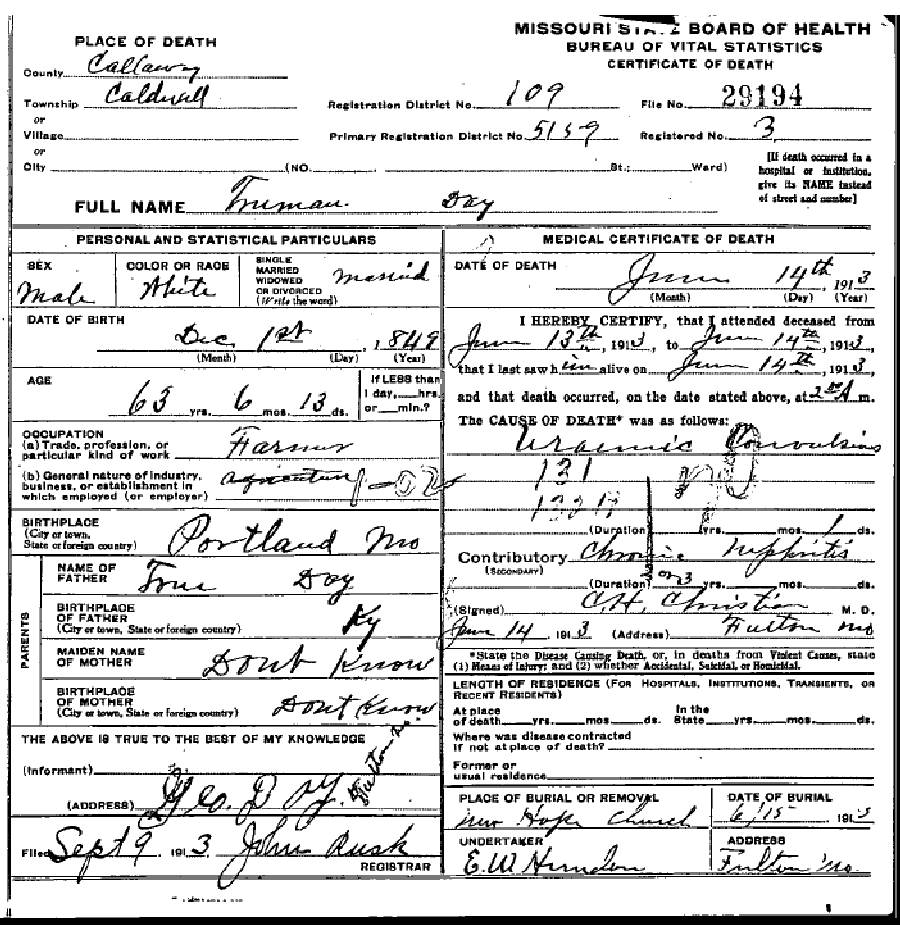 MISSOURI STATE BOARD OF HEALTH
BUREAU OF VITAL STATISTICS
CERTIFICATE OF DEATH
PLACE OF DEATH
County Callaway
Township Caldwell
or
Village
or
City (NO. St.; Ward)
Registration District No. 109 File No. 29194
Primary Registration District No. 5159 Registered No. 3
[If death occurred in a
hospital or institution,
give its NAME instead
of street and number]
FULL NAME Truman Day
PERSONAL AND STATISTICAL PARTICULARS
SEX Male
COLOR OR RACE White
SINGLE
MARRIED
WIDOWED
OR DIVORCED
(Write the word) Married
DATE OF BIRTH
Dec 1st, 1849
(Month) (Day) (Year)
AGE
63 yrs. 6 mos. 13 ds.
If LESS than
1 day, hrs.
or min.?
OCCUPATION
(a) Trade, profession, or
particular kind of work Farmer
(b) General nature of industry,
business, or establishment in
which employed (or employer)
BIRTHPLACE
(City or town,
State or foreign country) Portland Mo
PARENTS
NAME OF
FATHER Day
BIRTHPLACE
OF FATHER
(City or town, State or foreign country) Ky
MAIDEN NAME
OF MOTHER Dont Know
BIRTHPLACE
OF MOTHER
(City or town, State or foreign country) Dont Know
THE ABOVE IS TRUE TO THE BEST OF MY KNOWLEDGE
(Informant) Geo. Day
(ADDRESS) Fulton Mo.
Filed Sept 9, 1913 John Rusk
REGISTRAR
MEDICAL CERTIFICATE OF DEATH
DATE OF DEATH
June 14th, 1913
(Month) (Day) (Year)
I HEREBY CERTIFY, that I attended deceased from
June 13th, 1913, to June 14th, 1913,
that I last saw him alive on June 14th, 1913,
and that death occurred, on the date stated above, at 2 A m.
The CAUSE OF DEATH* was as follows:
Uraemic Convulsions
131
(Duration) yrs. mos. 1 ds.
Contributory Chronic Nephritis
(SECONDARY)
(Duration) 2 or 3 yrs. mos. ds.
(Signed) C.H. Christian M. D.
June 14, 1913 (Address) Fulton Mo
*State the Disease Causing Death, or, in deaths from Violent Causes, state
(1) Means of Injury; and (2) whether Accidental, Suicidal, or Homicidal.
LENGTH OF RESIDENCE (For Hospitals, Institutions, Transients, or
Recent Residents)
At place
of death yrs. mos. ds.
In the
State yrs. mos. ds.
Where was disease contracted
if not at place of death?
Former or
usual residence
PLACE OF BURIAL OR REMOVAL
New Hope Church
DATE OF BURIAL
6/15 1913
UNDERTAKER
E.W. Herndon
ADDRESS
Fulton Mo.